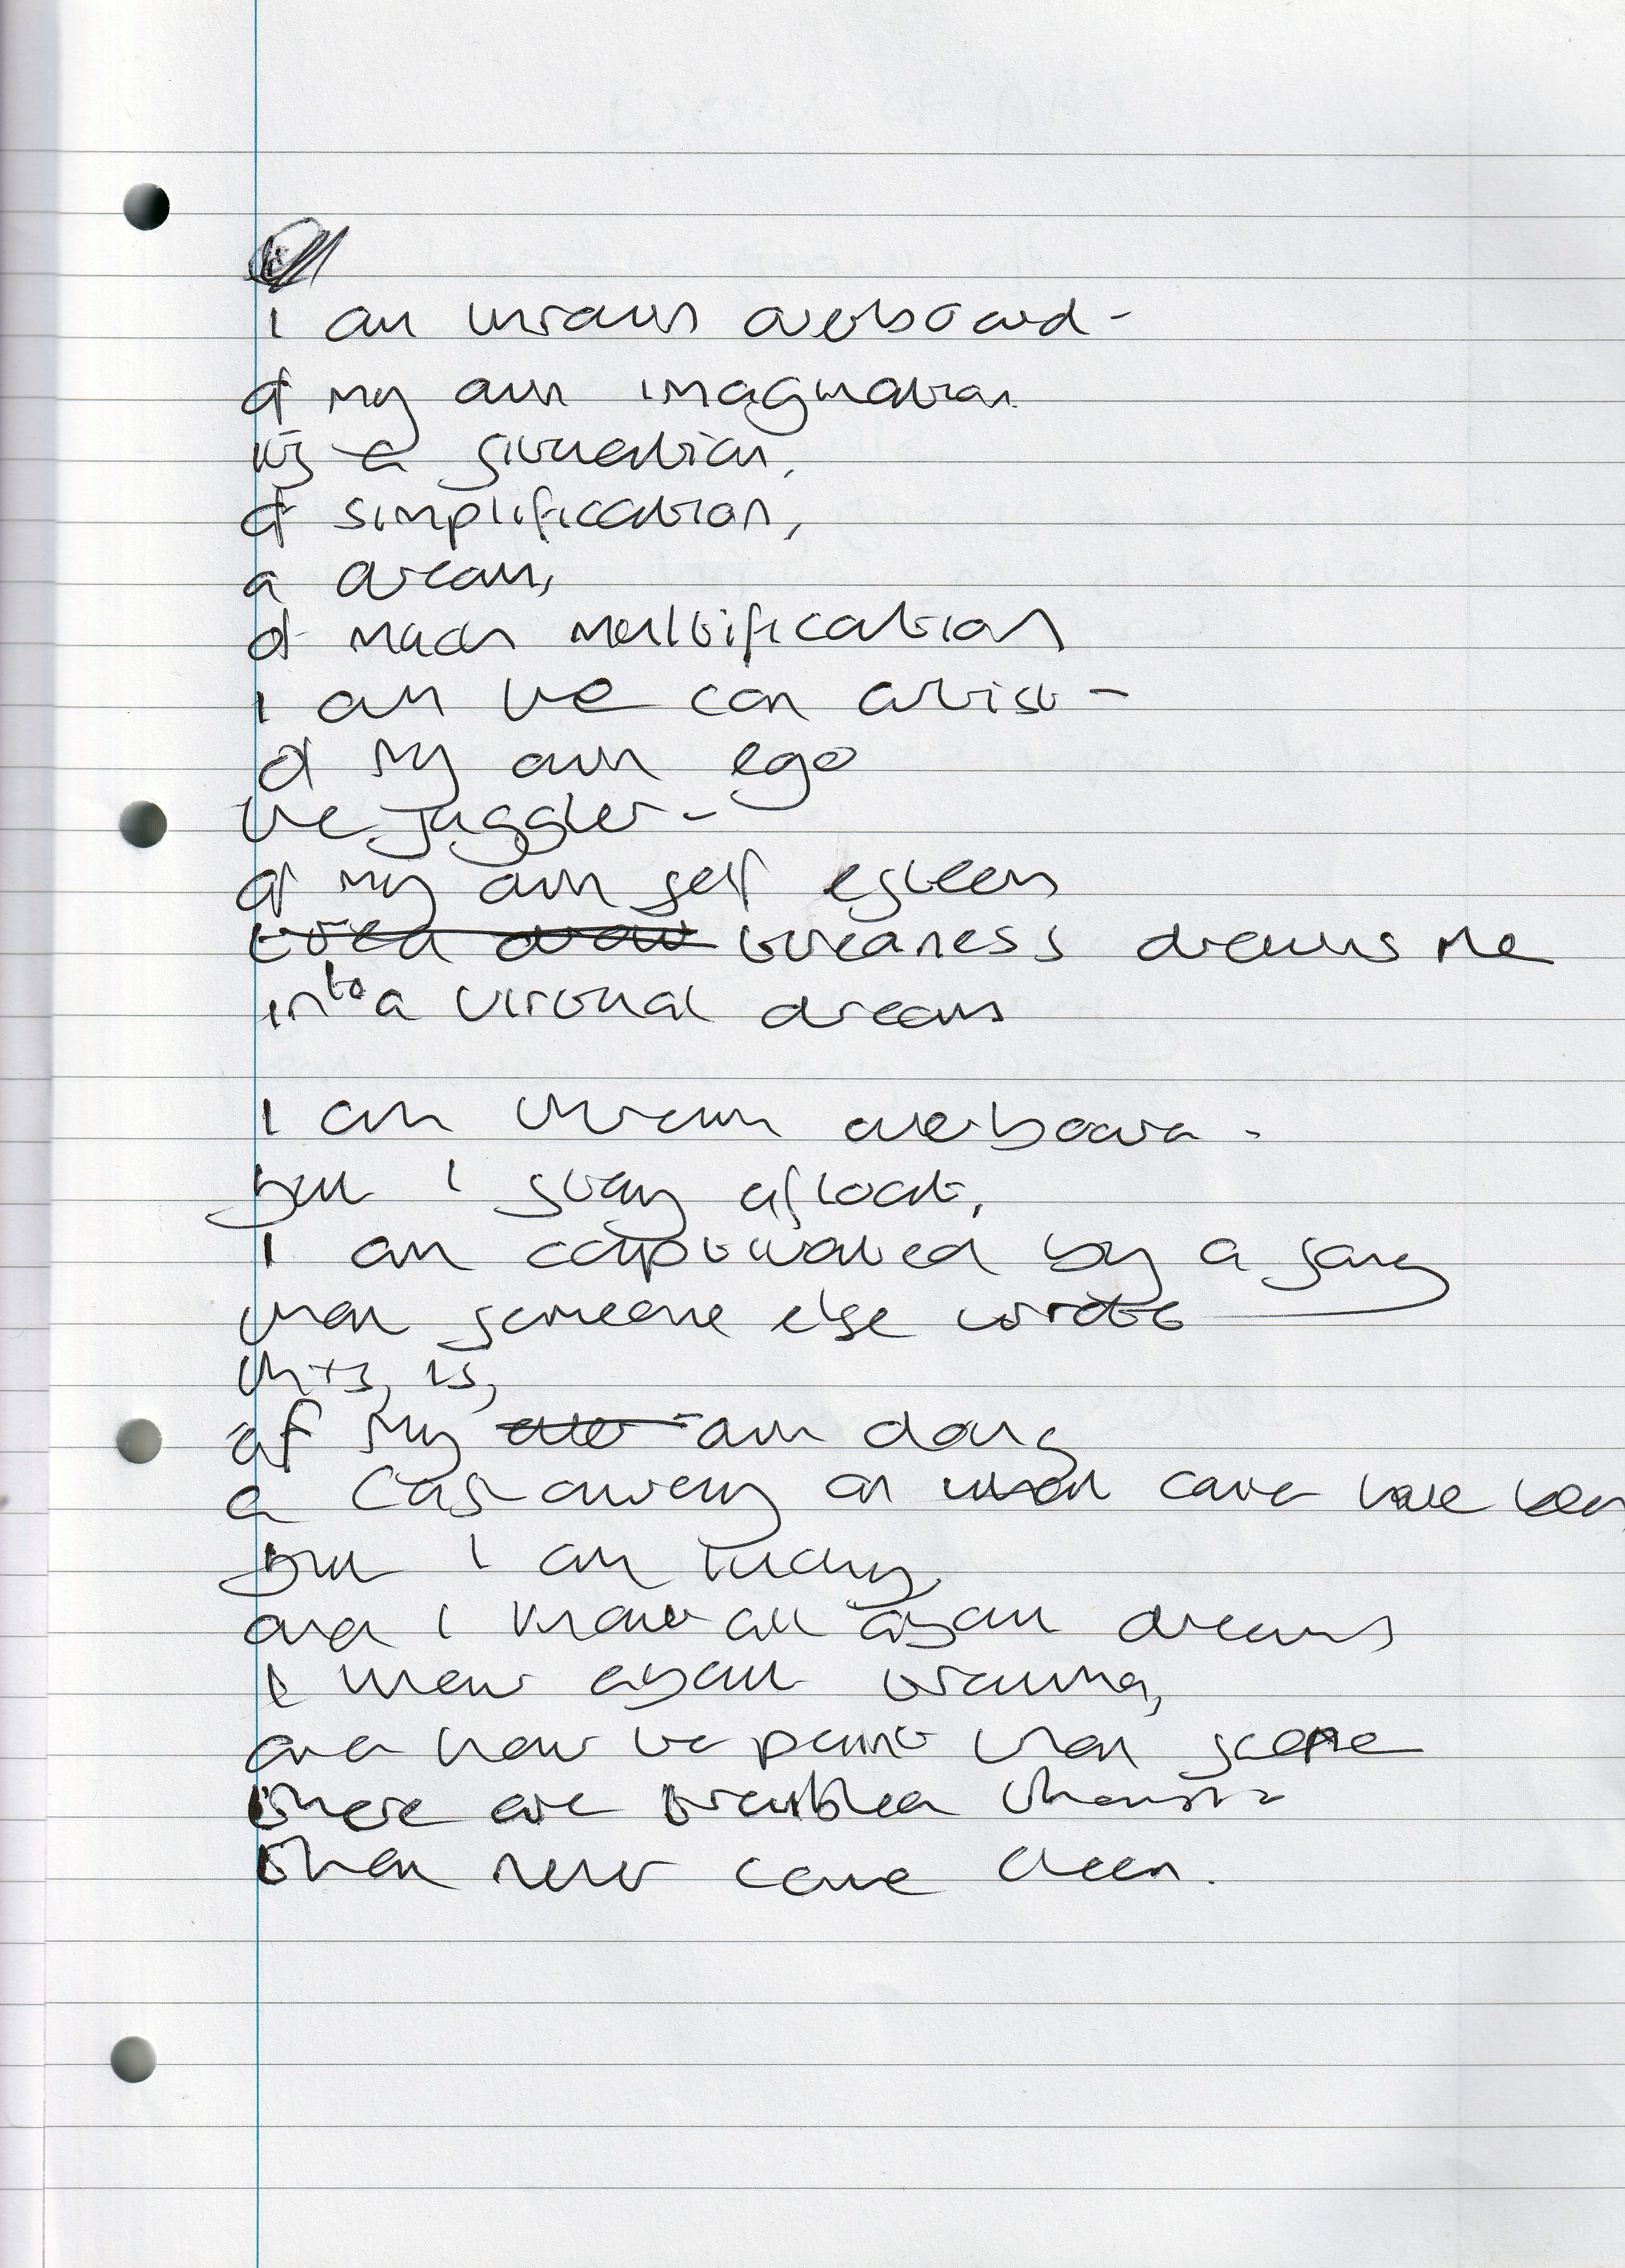 I am thrown overboard -
of my own imagination
its a situation,
of simplification,
a dream,
of much multification
I am the con artist -
of my own ego
the juggler -
of my own self esteem
tired draw tiredness draws me
into a virtual dream

I am thrown overboard -
but I stay afloat,
I am captivated by a song
that someone else wrote
this, is,
of my own doing
a castaway on what could have been
but I am lucky,
and I know all about dreams
I know about trauma,
and how to paint that scene
there are troubled thoughts
that never come clean.